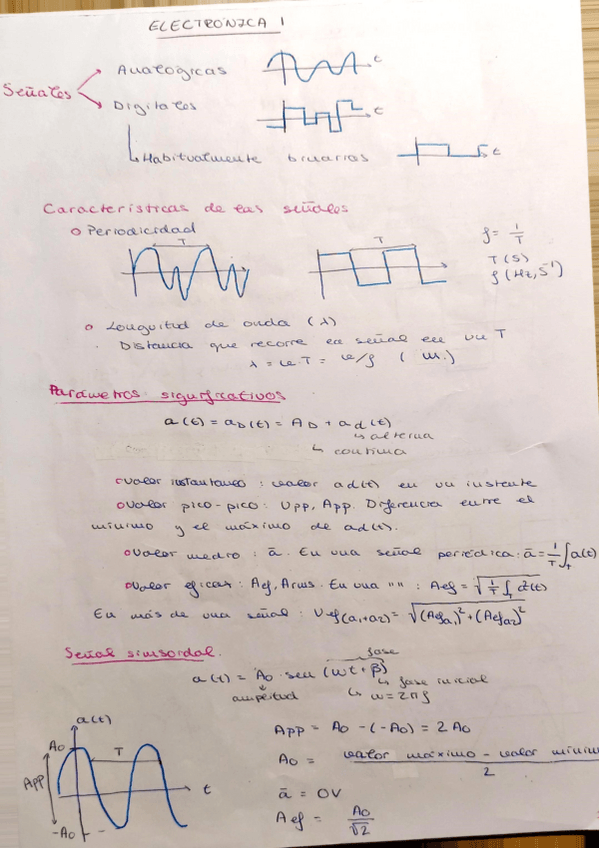 ELECTRÓNICA 1
Señales
Analógicas
t
Digitales
t
Habitualmente binarias
t
Características de las señales
o Periodicidad
T
T
f = 1/T
T (s)
f (Hz, s⁻¹)
o Longuitud de onda (λ)
. Distancia que recorre la señal en un T
λ = v T = v/f ( m.)
Parámetros significativos
a(t) = aD(t) = AD + ad(t)
↳ alterna
↳ continua
o Valor instantaneo : valor ad(t) en un instante
o Valor pico-pico: Upp, App. Diferencia entre el
mínimo y el máximo de ad(t).
o Valor medio : ā. En una señal periódica: ā = 1/T ∫T a(t)
o Valor eficaz : Aef, Arms. En una "" : Aef = √(1/T ∫T a²(t))
En más de una señal : Vef(a1+a2) = √((Aefa1)² + (Aefa2)²)
Señal sinusoidal.
fase
a(t) = Ao · sen (ωt + β)
amplitud
↳ fase inicial
↳ ω = 2πf
a(t)
Ao
T
App
t
-Ao
App = Ao - (-Ao) = 2 Ao
Ao = valor máximo - valor mínim / 2
ā = 0V
Aef = Ao/√2